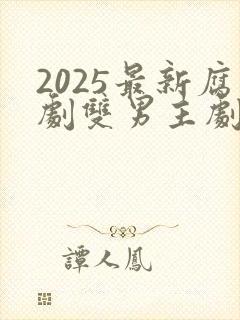 2025最新腐
劇雙男主劇
譚人鳳